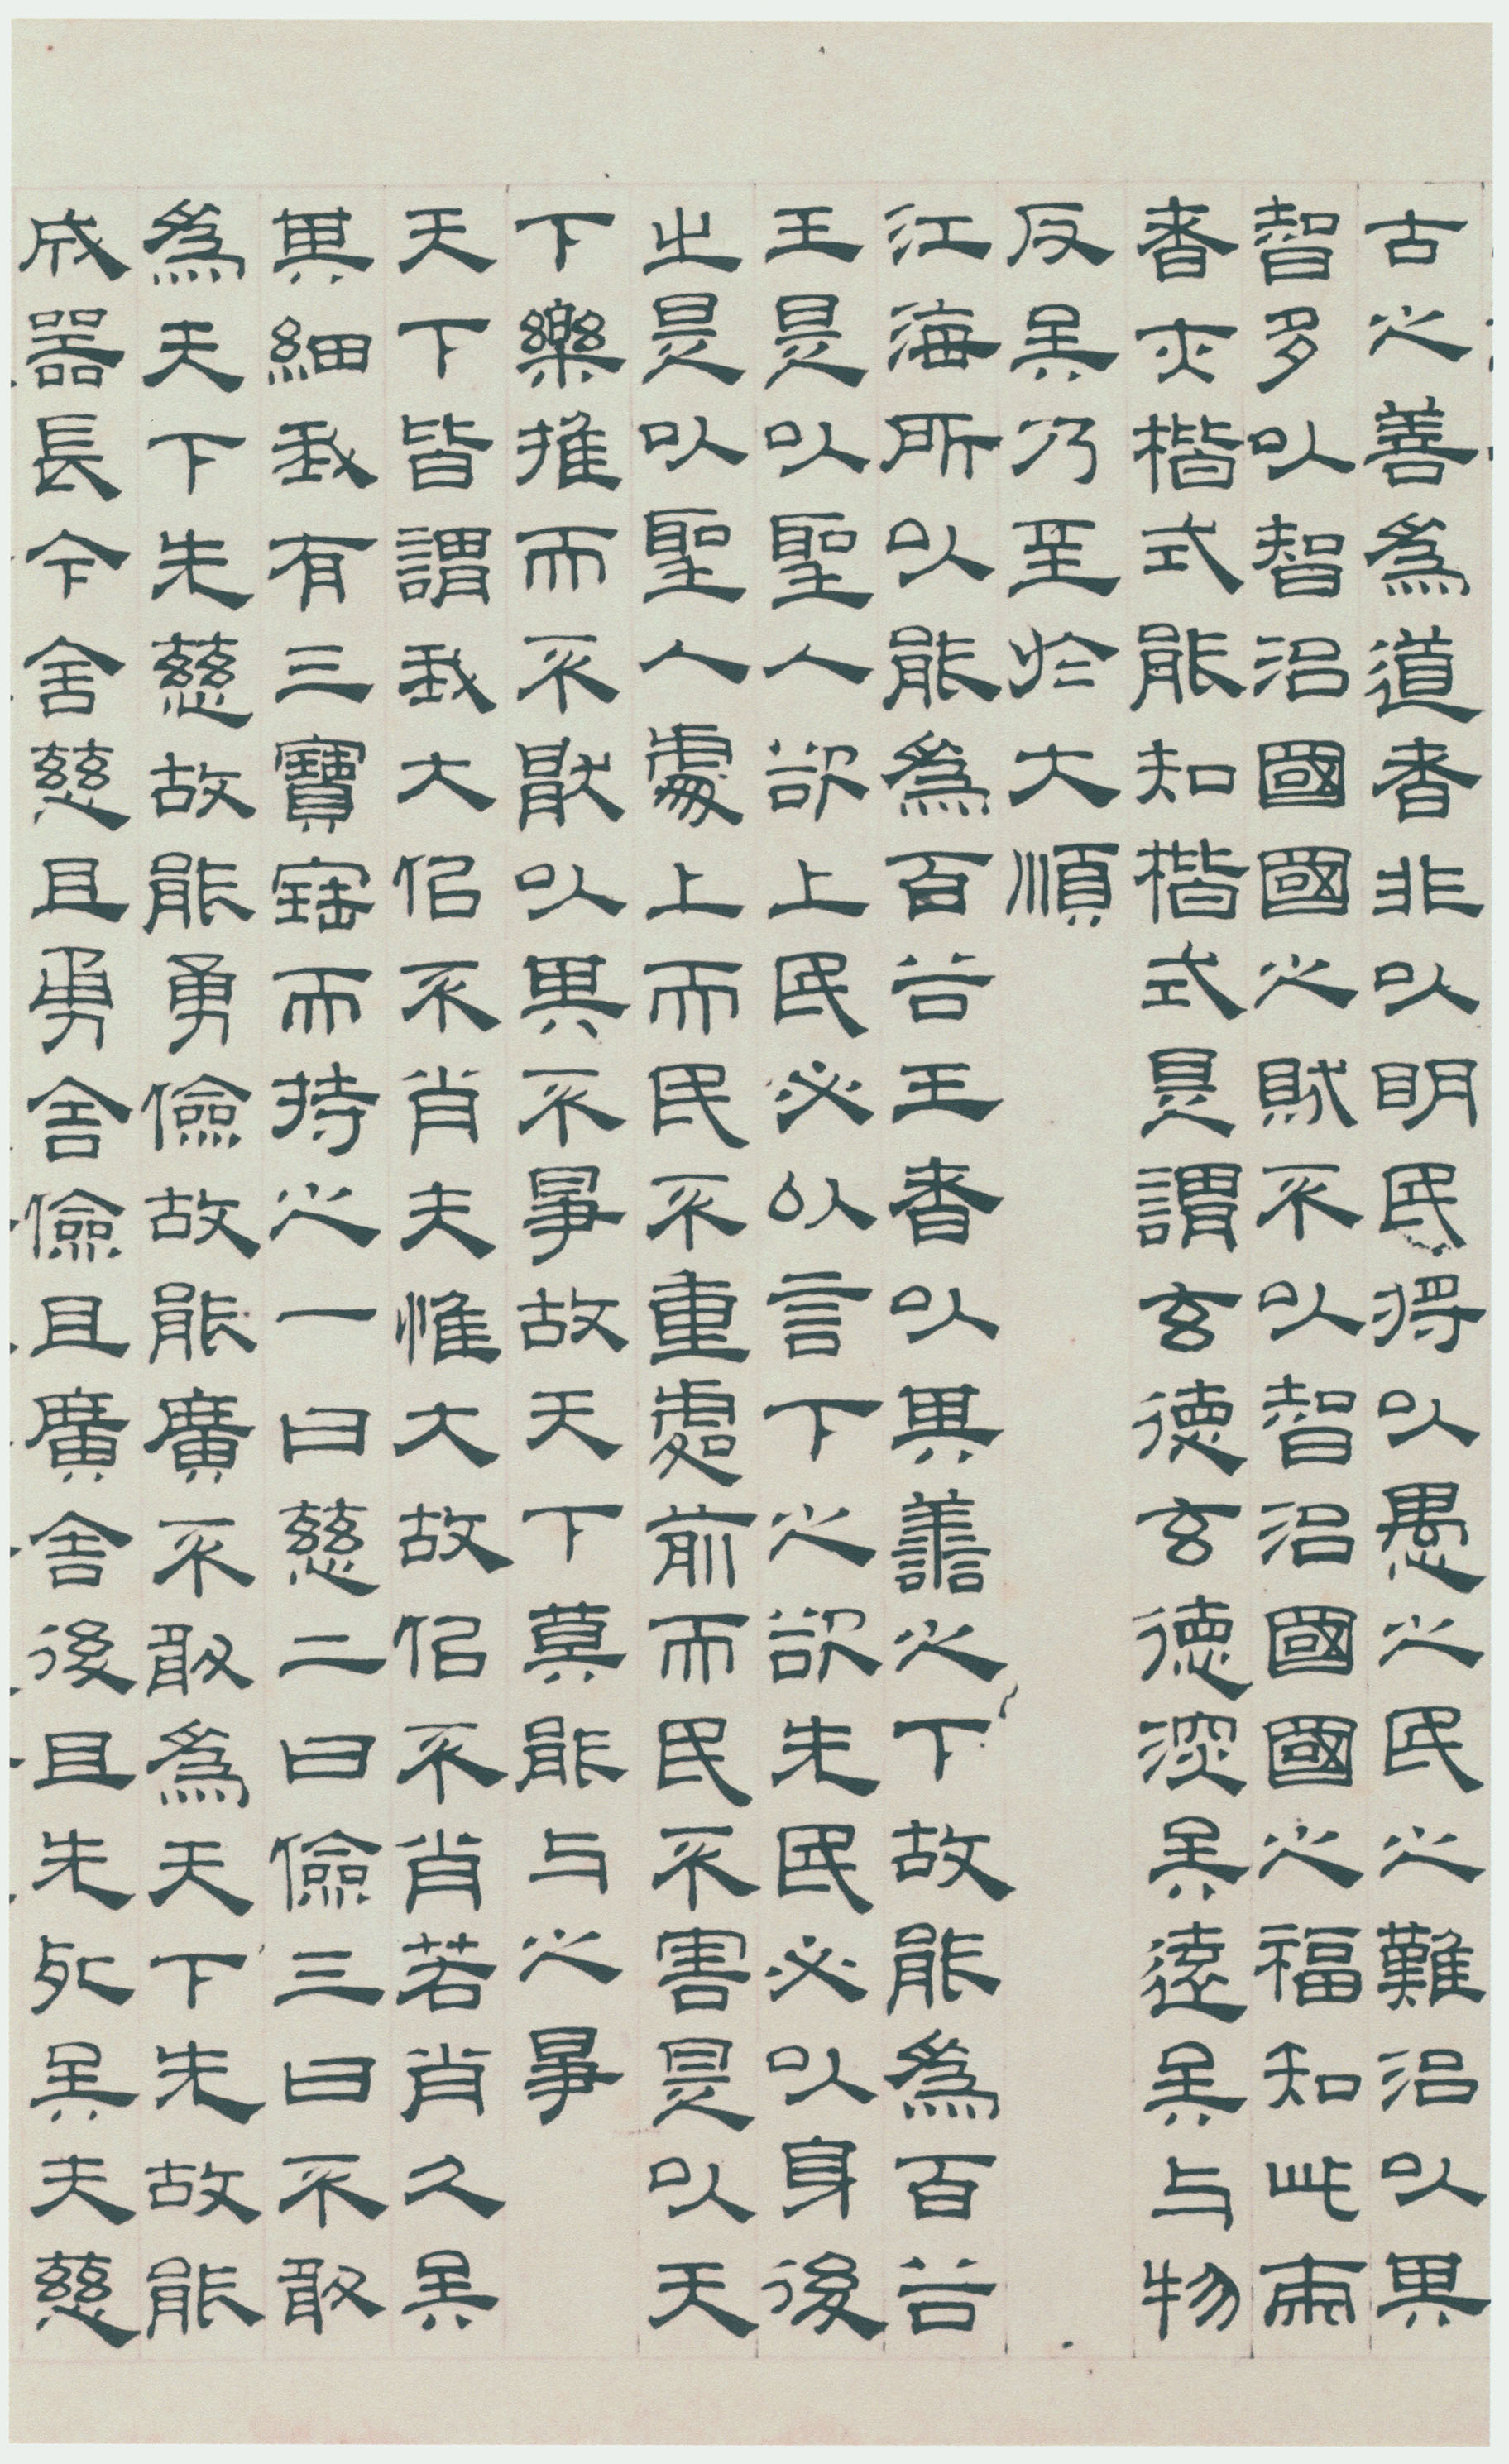 古之善爲道者非以明民将以愚之民之難治以其
智多以智治國國之賊不以智治國國之福知此兩
者亦楷式能知楷式是謂玄德玄德深矣遠矣与物
反矣乃至於大順
江海所以能爲百谷王者以其譱之下故能爲百谷
王是以聖人欲上民必以言下之欲先民必以身後
之是以聖人處上而民不重處前而民不害是以天
下樂推而不猒以其不爭故天下莫能与之爭
天下皆謂我大佀不肖夫惟大故佀不肖若肖久矣
其細我有三寶寚而持之一曰慈二曰儉三曰不敢
爲天下先慈故能勇儉故能廣不敢爲天下先故能
成器長今舍慈且勇舍儉且廣舍後且先死矣夫慈